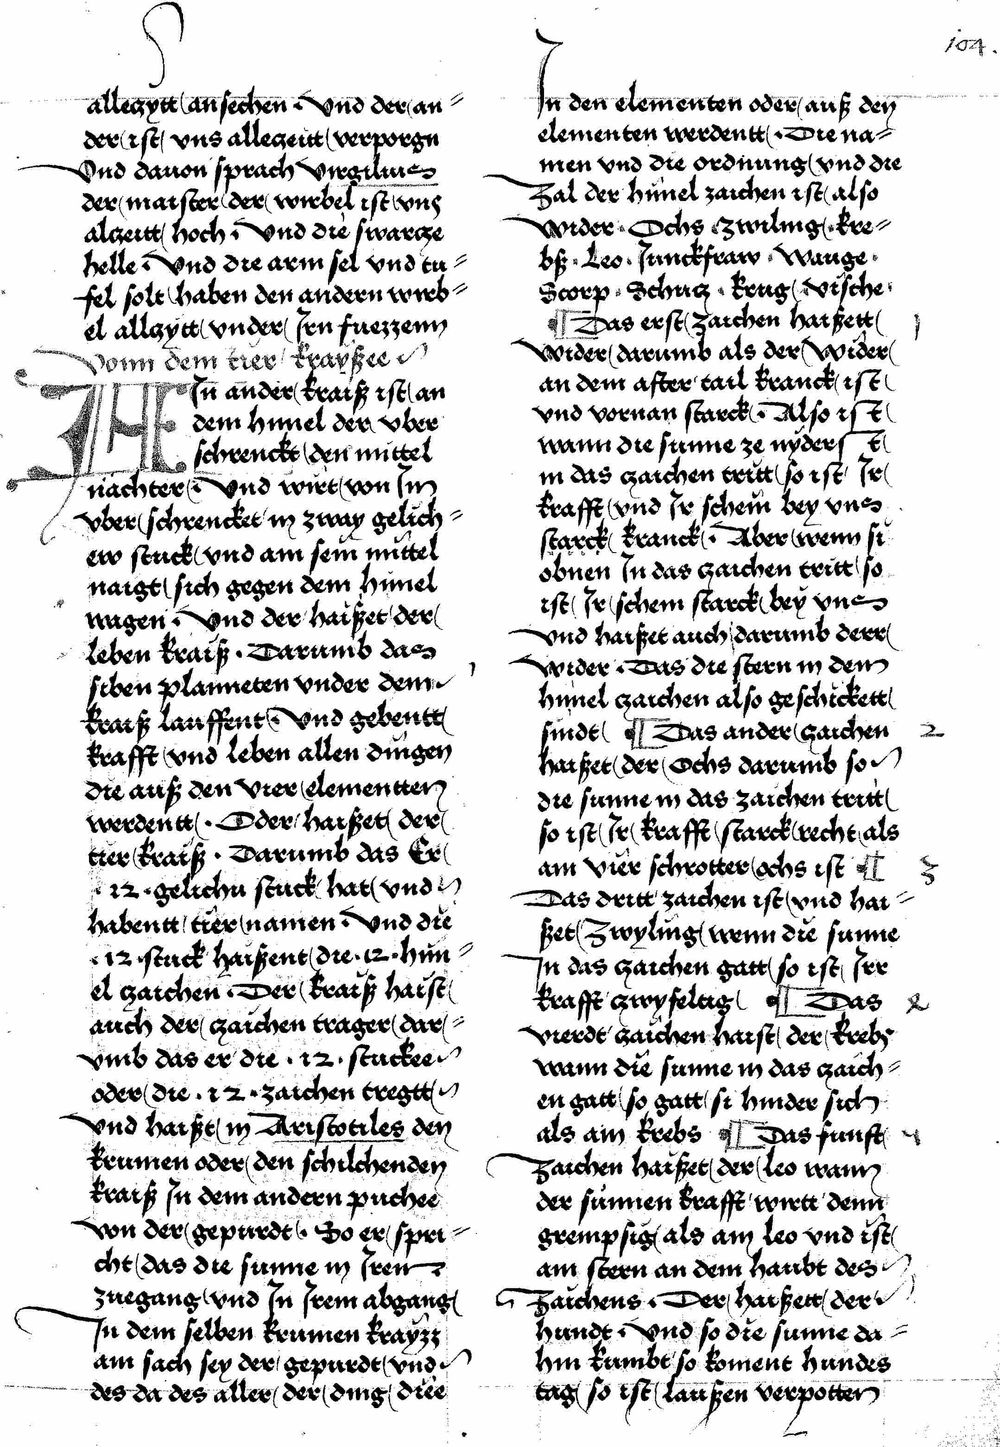 104.
allezytt ansechen. Vnd der an=
der ist vns allezeitt verporgn
Vnd dauon sprach Virgilius
der maister der wirbel ist vns
alzeitt hoch. Vnd die swarcze
helle. Vnd die arm sel vnd tu=
fel solt haben den andern wirb=
el allzytt vnder Irn fuezzenn
Vonn dem tier krayßee
In ander kraiß ist an
dem himel der vber
schrenckt den mittel
nächter. Vnd wirt von Im
vber schrencket in zway gelich=
ew stuck vnd am sein mittel
naigt sich gegen dem himel
wagen. Vnd der haißet der
leben kraiß. Darumb das
siben planneten vnder dem
kraiß lauffent. Vnd gebentt
krafft vnd leben allen dingen
die auß den vier elementten
werdentt. Oder haißet der
tier kraiß. Darumb das Er
.12. gelichu stuck hat vnd
habentt tier namen. Vnd die
.12. stuck haißent die .12. him=
el zaichen. Der kraiß haist
auch der zaichen trager dar=
vmb das er die .12. stuckee
oder die .12. zaichen tregtt
vnd haißt in Aristotiles den
krumen oder den schilchenden
kraiß In dem andern puchee
von der gepurdt. So er spri=
cht das die sunne in Iren
zuegang vnd In Irem abgang
In dem selben krumen krayzz
ain sach sey der gepurdt vnd
des da des aller der ding diee
In den elementen oder auß den
elementen werdentt. Die na=
men vnd die ordnung vnd die
Zal der himel zaichen ist also
Wider. Ochs. Zwiling. kre=
bß. Leo. Junckfraw. Wauge.
Scorp. Schucz. krug. Vische.
Das erst zaichen haißett 1
Wider darumb als der Wider
an dem after tail kranck ist
vnd vornan starck. Also ist
wann die sunne ze nyderst
in das zaichen tritt so ist Ir
krafft vnd Ir schein bey vns
starck kranck. Aber wenn si
obnen In das zaichen tritt so
ist Ir schein starck bey vns
vnd haißet auch darumb derr
Wider. Das die stern in dem
himel zaichen also geschickett
sindt Das ander zaichen 2
haißet der Ochs darumb so
die sunne in das zaichen tritt
so ist Ir krafft starck recht als
am vier schrotter ochs ist 3
Das dritt zaichen ist vnd hai=
ßet Zwyling wenn die sunne
In das zaichen gatt so ist Irr
krafft zwyfeltig Das
vierdt zaichen haist der krebs
wann die sunne in das zaich=
en gatt so gatt si hinder sich
als ain krebs Das funft
zaichen haißet der leo wann
der sunnen krafft wirtt denn
grempsig als am leo vnd ist
am stern an dem haubt des
Zaichens. Der haißett der
hundt. Vnd so die sunne da=
hin kumbt so koment hundes
tag so ist laußen verpotten